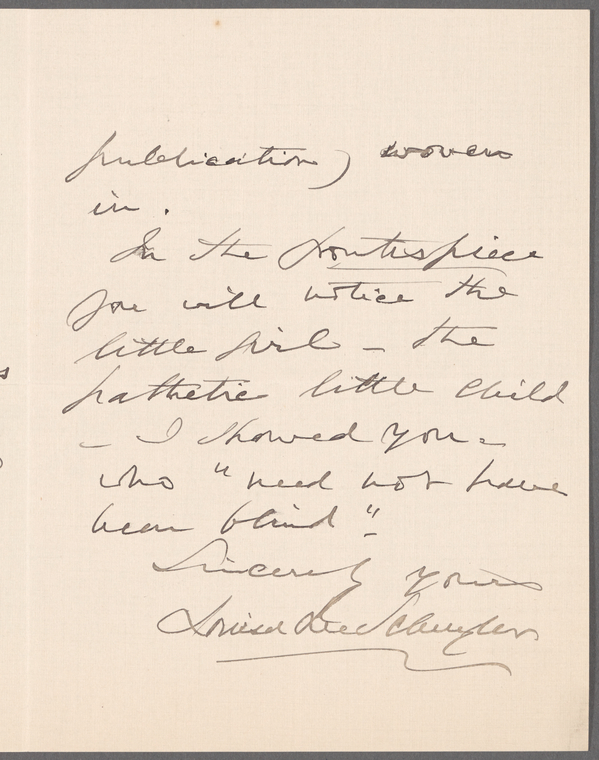 publication) woven
in.
In the frontispiece
you will notice the
little girl – the
pathetic little child
– I showed you –
who "need not have
been blind".
Sincerely yours
Louisa Lee Schuyler